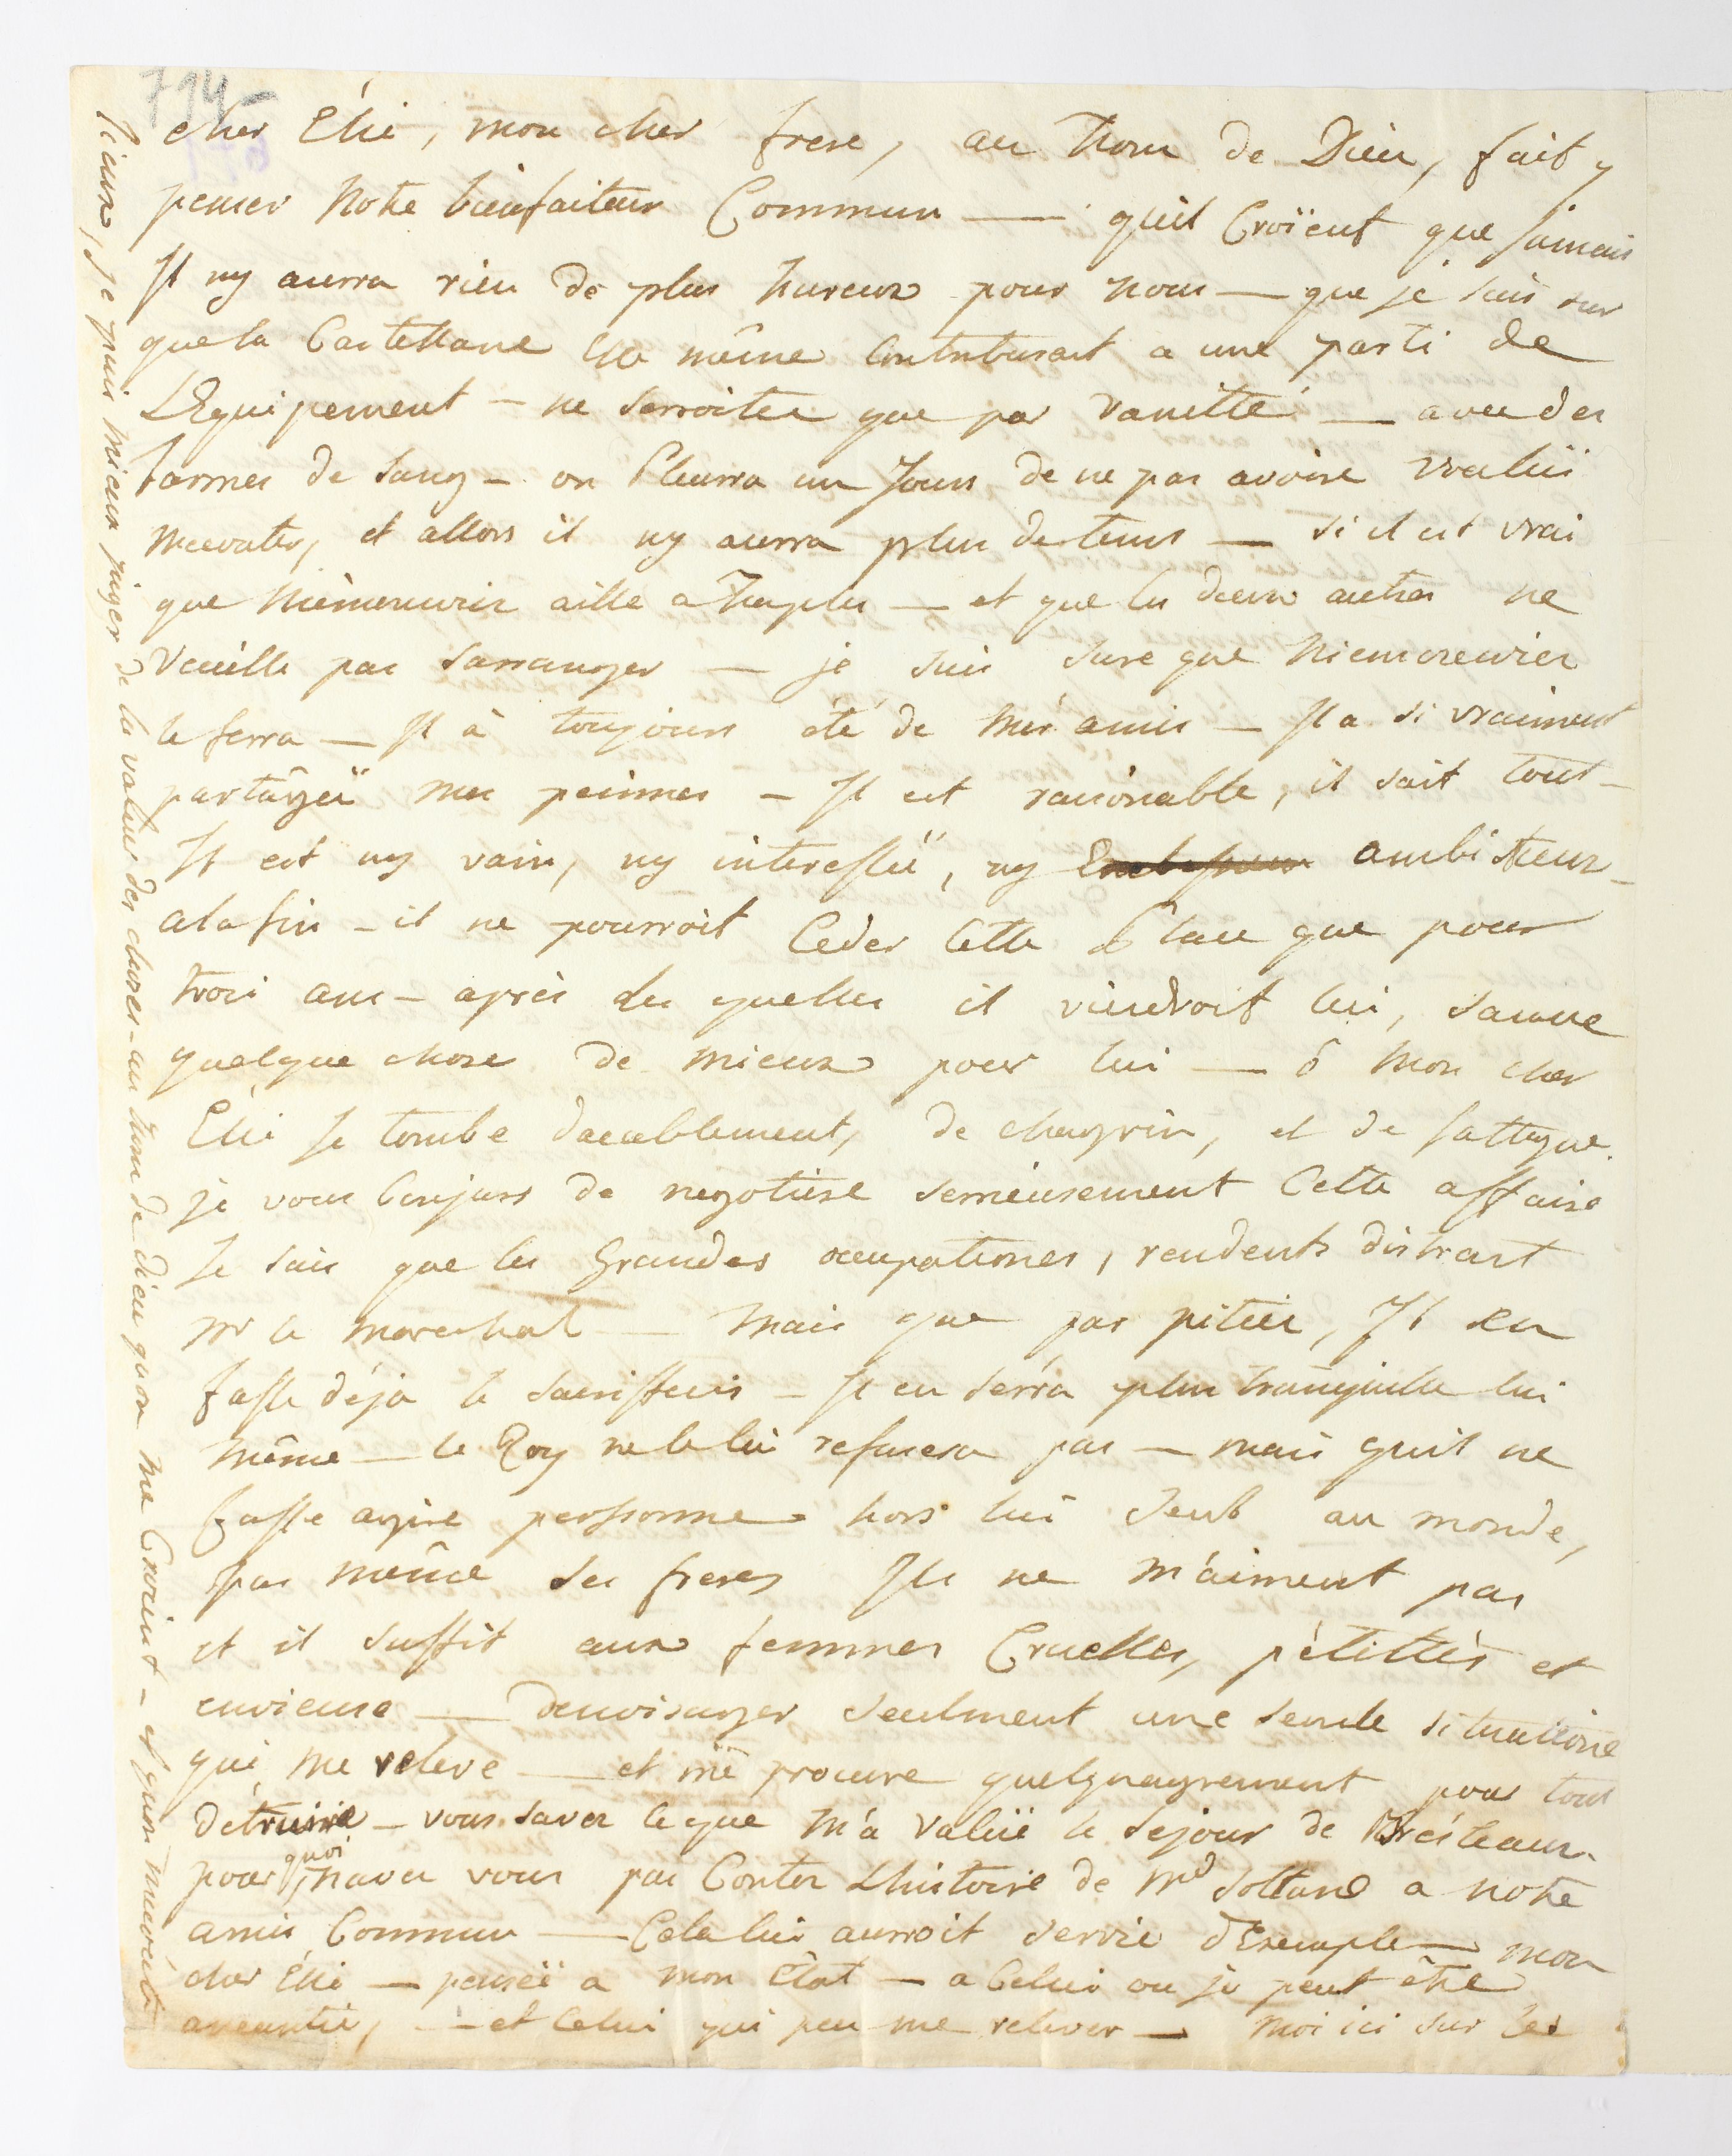 794
cher Elié, mon cher frere, au nom de Dieu, fait y
penser notre bienfaiteur Commun — quil Croïent que jamais
Il ny aurra rien de plus hureux pour nous — que je suis sur
que la Castellane elle même Contriburait a une parti de
LEquipement — ne serroitee que par vanitté — avec des
larmes de sang — on Pleurra un Jour de ne pas avoire voulüi
mecouter, et allors il ny aurra plus de tems — si il est vrai
que Niemcewicz aille a Naples — et que les deux autres ne
veuille pas sarranger — je suis sure que Niemcewicz
le ferra — Il à toujours été de més amis — Il a si vraiment
partâgéü mes peinnes — Il est raisonable, il sait tout —
Il est ny vain, ny interessé, ny ambitieux —
alafin — il ne pourroit Ceder Cette Place que pour
trois ans — après les quelles il viendroit lui,
quelque chose de mieux pour lui — ô mon cher
Elié Je tombe daccablement, de chagrin, et de fattigue.
je vous Conjure de negotiere serrieusement Cette affaire
Je sais que les Grandes occupationes, rendents distrait
Mr le marechal — mais que par pitiée, Il en
fasse déja le sacriffeis — Il en serra plus tranquille lui
même — le Roy ne le lui refusera pas — mais quil ne
fasse agire perssonne hors lui seul au monde,
pas même ses freres Ils ne m'aiment pas
et il suffit aux femmes Cruelles, pétittés et
envieuse — denvisanger seulment une seule situatione
qui me releve — et me procure quelquagrement pour tout
detruire — vous saver le que m'a valüé le sejour de Bresleaux.
pour quoi naver vous pas Conter Lhistoire de Md Soltane a notre
amis Commun — Cela lui aurroit servie dExemple — mon
cher Elié — penséé a mon Etat — a Celui ou je peut être
aneantie, — et Celui qui peu me relever — moi ici sur les
lieux, je puis mieux juger de la valeur des choses — au nom de dieu quon me Croient — et quon mecoute